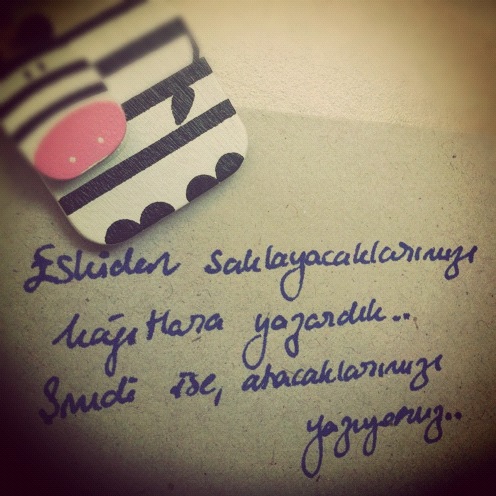 Eskiden saklayacaklarımızı
kâğıtlara yazardık..
Şimdi ise, atacaklarımızı
yazıyoruz..